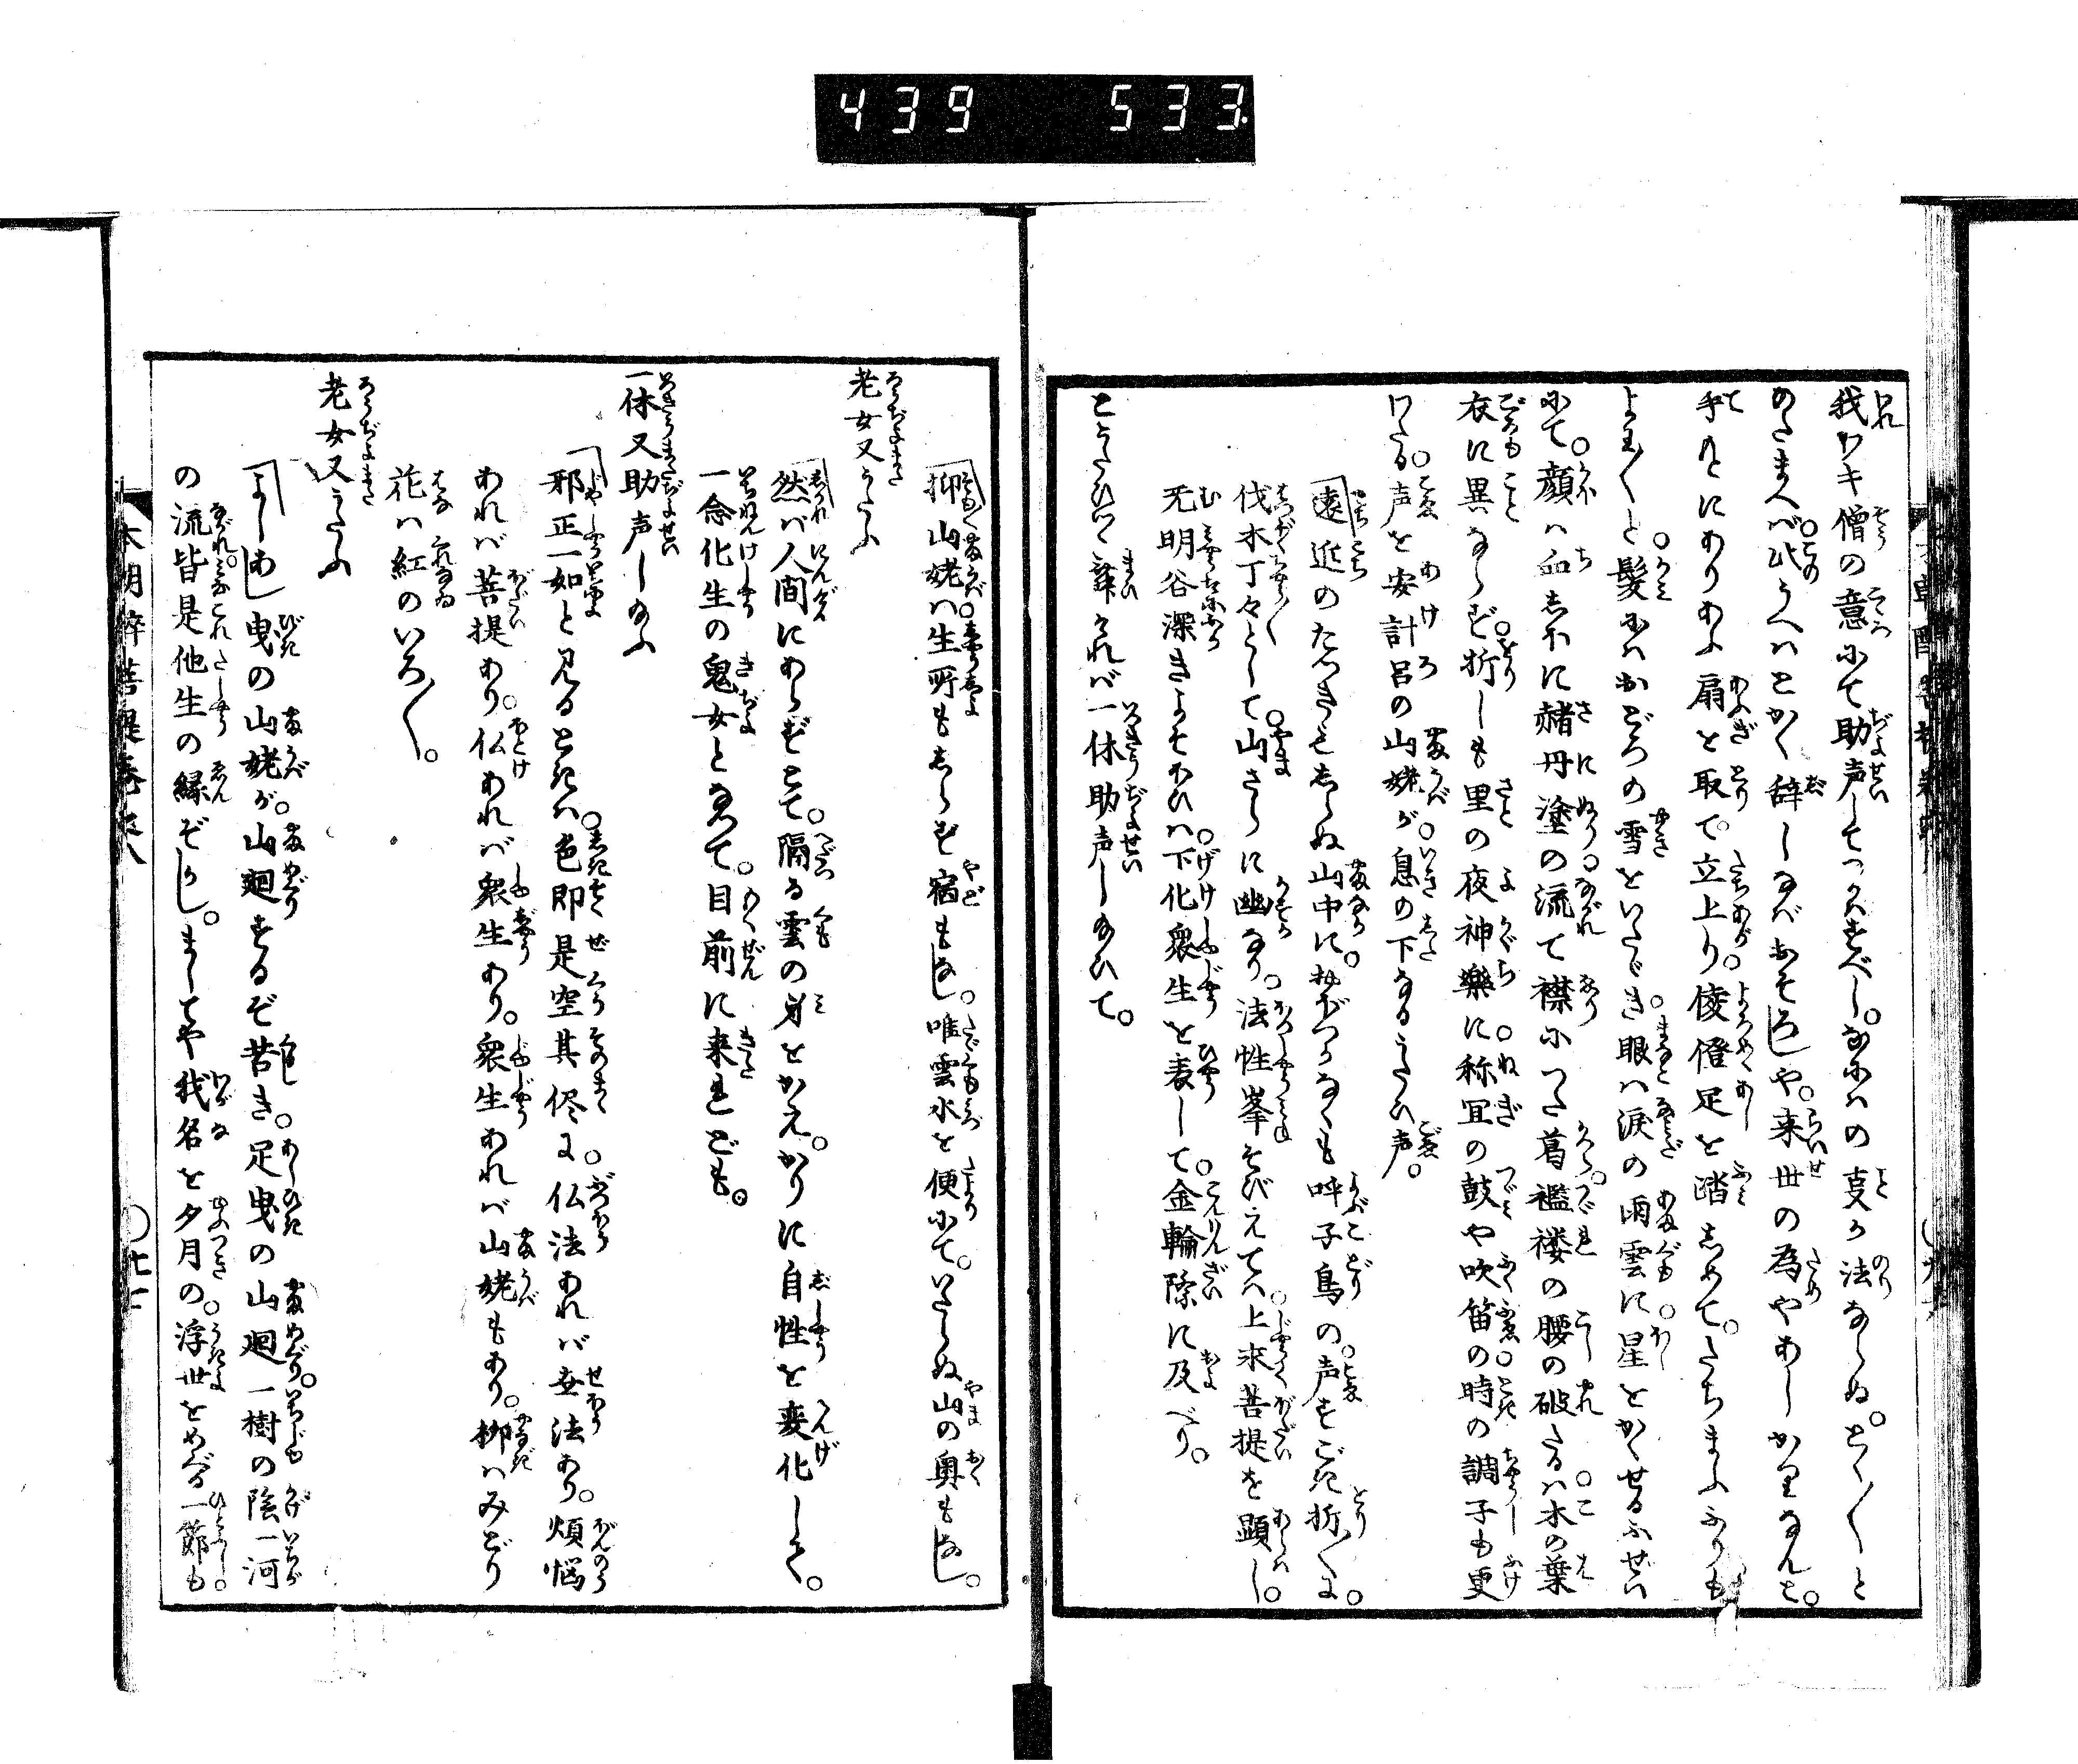 439 533
我ワキ僧の意にて助声してつかはすべし。なにはの叓か法ならぬ。とく〳〵と
のたまへば。此うへはとかく辞しなばおそろしや。来世の為やあしかりなんと。
手もとにありあふ扇を取て。立上り。倰僜足を踏しめて。たちまふふりも
よは〳〵と。髪にはおどろの雪をいたゞき。眼は涙の雨雲に。星をかくせるふぜい
にて。顔は血しほに赭丹塗の。流て襟につた葛。襤褸の腰の破たるは。木の葉
衣に異ならず。折しも里の夜神楽に。祢宜の鼓や吹笛の。時の調子も更
わたる。声を安計呂の山姥が。息の下なるうたひ声。
遠近のたつきもしらぬ山中に。おぼつかなくも呼子鳥の。声すごき折〳〵に。
伐木丁々として。山さらに幽なり。法性峯そびえては。上求菩提を顕し。
无明谷深きよそほひは。下化衆生を表して。金輪際に及べり。
とうたひつゝ舞ければ一休助声し給ひて。
老女又うたふ
抑山姥は。生所もしらず宿もなし。唯雲水を便にて。いたらぬ山の奥もなし。
然ば人間にあらずとて。隔る雲の身をかえ。かりに自性を変化して。
一念化生の鬼女となつて。目前に来れども。
一休又助声し給ふ
邪正一如と見るときは。色即是空其侭に。仏法あれば世法あり。煩悩
あれば菩提あり。仏あれば衆生あり。衆生あれば山姥もあり。柳はみどり
花は紅のいろ〳〵。
老女又うたふ
よしあし曳の山姥が。山廻するぞ苦き。足曳の山廻。一樹の陰一河
の流。皆是他生の縁ぞかし。ましてや我名を夕月の。浮世をめぐる一節も
本朝酔菩提巻之八